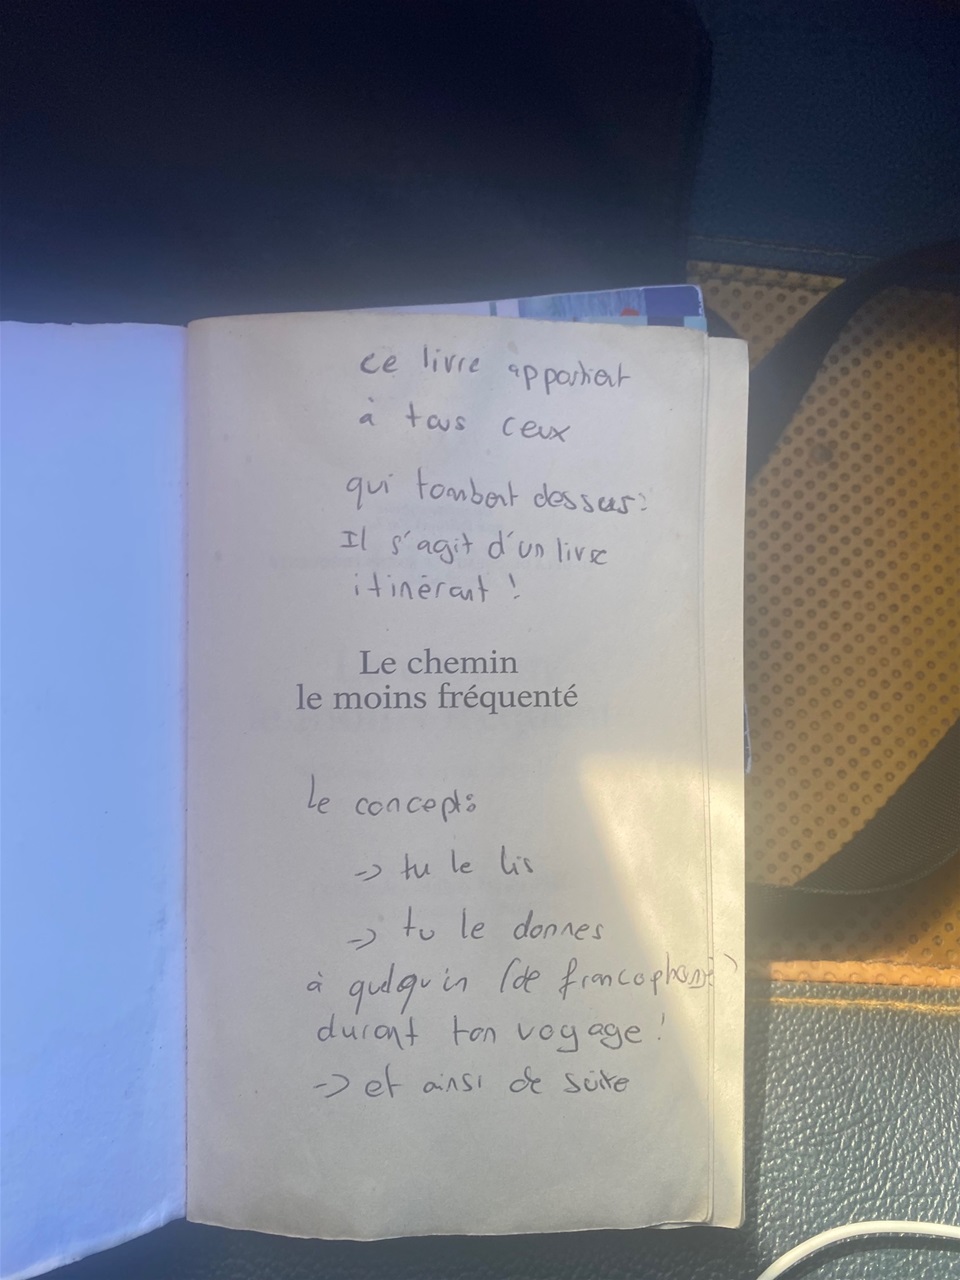 ce livre appartient
à tous ceux
qui tombent dessus:
Il s'agit d'un livre
itinérant !
Le chemin
le moins fréquenté
le concept:
-> tu le lis
-> tu le donnes
à quelqu'un (de francophone)
durant ton voyage !
-> et ainsi de suite